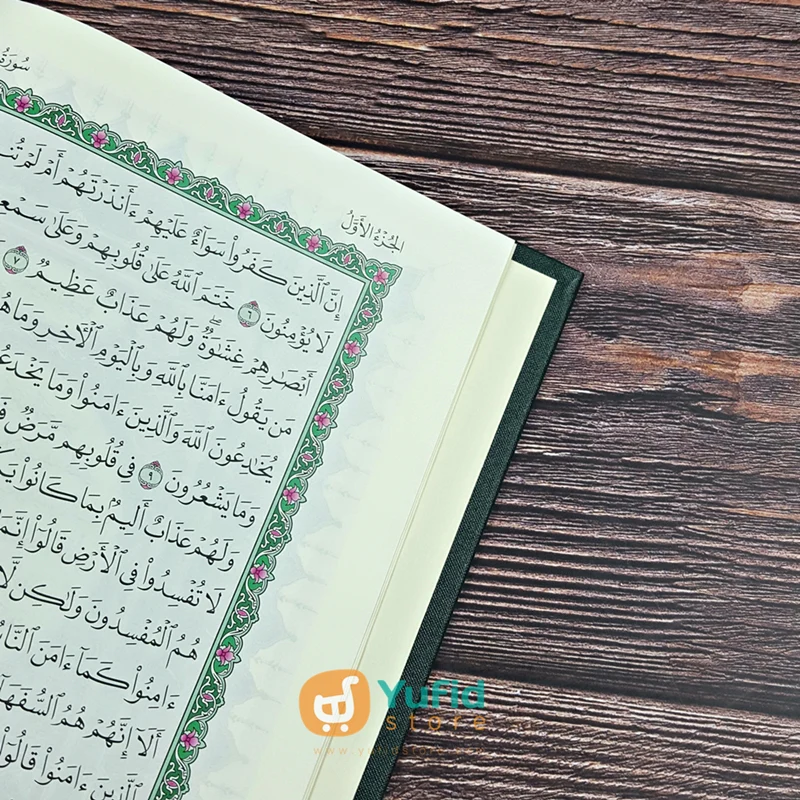 سُورَةُ
الجُزْءُ الأَوَّلُ
إِنَّ ٱلَّذِينَ كَفَرُواْ سَوَآءٌ عَلَيْهِمْ ءَأَنذَرْتَهُمْ أَمْ لَمْ
لَا يُؤْمِنُونَ ٦ خَتَمَ ٱللَّهُ عَلَىٰ قُلُوبِهِمْ وَعَلَىٰ
أَبْصَٰرِهِمْ غِشَٰوَةٌ وَلَهُمْ عَذَابٌ عَظِيمٌ ٧
مَن يَقُولُ ءَامَنَّا بِٱللَّهِ وَبِٱلْيَوْمِ ٱلْأٓخِرِ وَمَا
يُخَٰدِعُونَ ٱللَّهَ وَٱلَّذِينَ ءَامَنُواْ وَمَا
وَمَا يَشْعُرُونَ ٩ فِى قُلُوبِهِم مَّرَضٌ
وَلَهُمْ عَذَابٌ أَلِيمٌ بِمَا كَانُواْ
لَا تُفْسِدُواْ فِى ٱلْأَرْضِ قَالُوٓاْ
هُمُ ٱلْمُفْسِدُونَ وَلَٰكِن
ءَامِنُواْ كَمَآ ءَامَنَ
أَلَآ إِنَّهُمْ هُمُ
ٱلَّذِينَ ءَامَنُواْ قَالُوٓاْ
Yufid
store